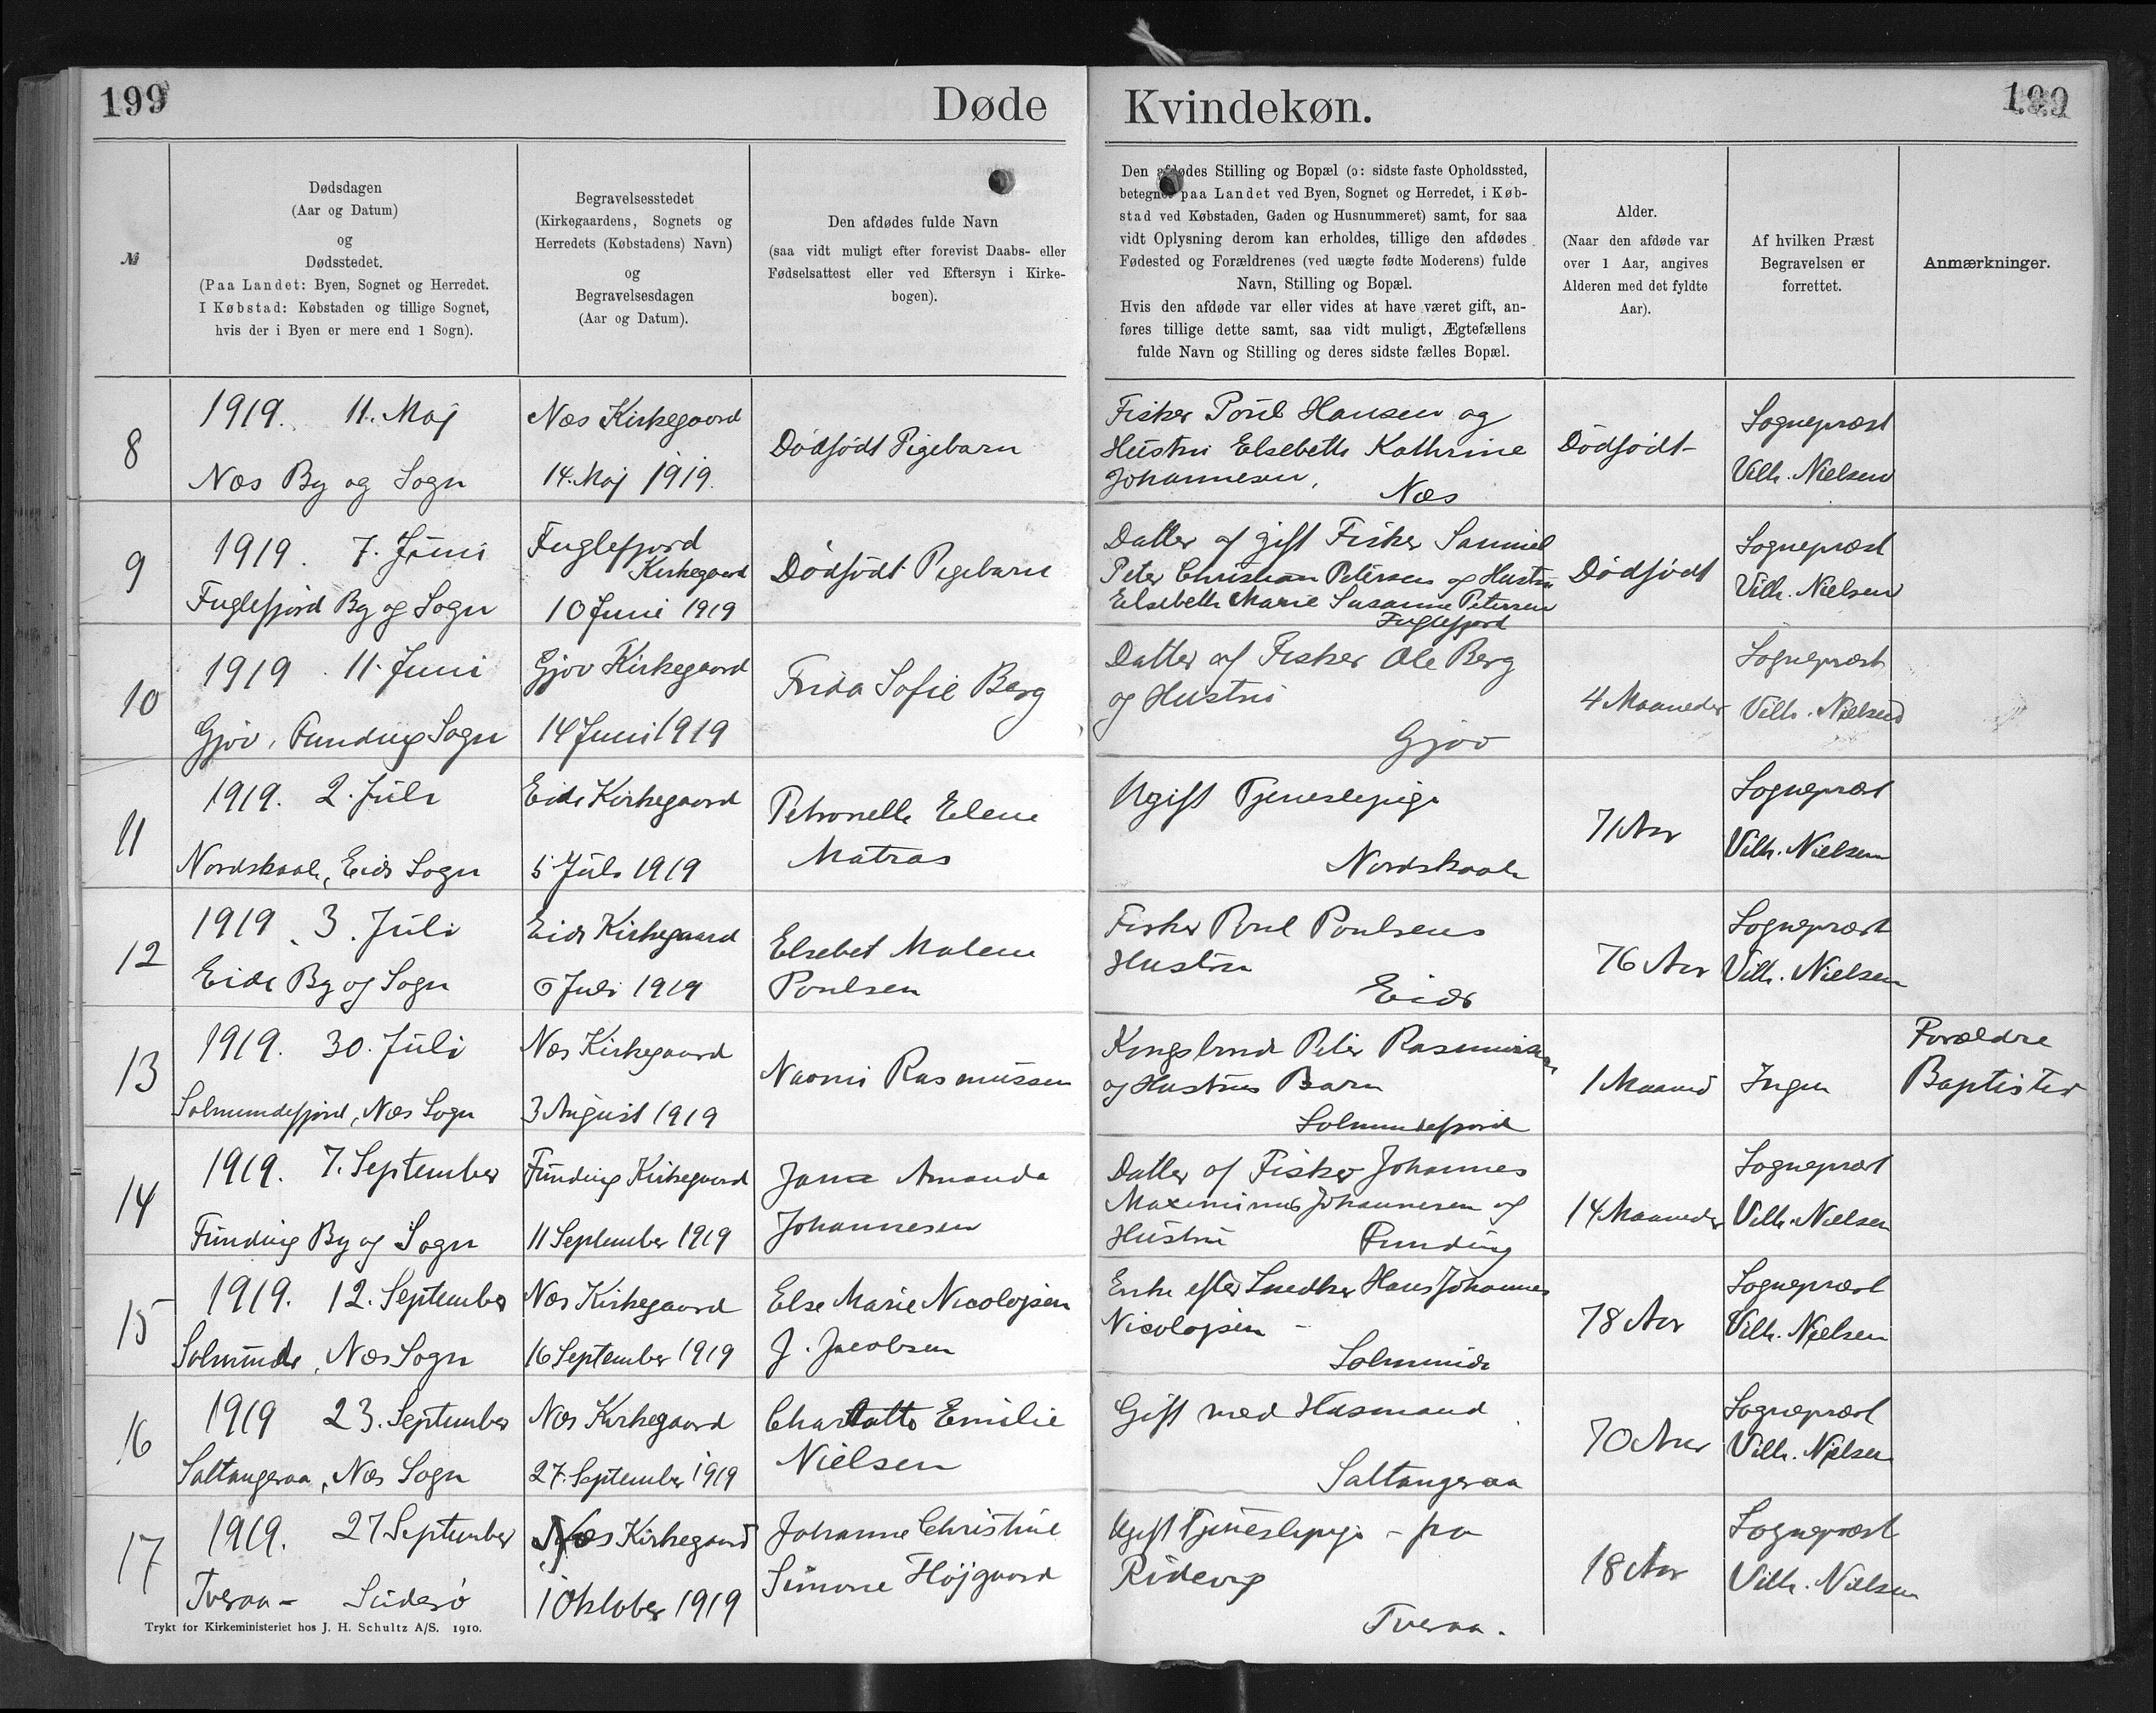 199
Døde
Kvindekøn.
199
№
Dødsdagen
(Aar og Datum)
og
Dødsstedet.
(Paa Landet: Byen, Sognet og Herredet.
I Købstad: Købstaden og tillige Sognet,
hvis der i Byen er mere end 1 Sogn).
Begravelsesstedet
(Kirkegaardens, Sognets og
Herredets (Købstadens) Navn)
og
Begravelsesdagen
(Aar og Datum).
Den afdødes fulde Navn
(saa vidt muligt efter forevist Daabs- eller
Fødselsattest eller ved Eftersyn i Kirke-
bogen).
Den afdødes Stilling og Bopæl (ɔ: sidste faste Opholdssted,
betegnet paa Landet ved Byen, Sognet og Herredet, i Køb-
stad ved Købstaden, Gaden og Husnummeret) samt, for saa
vidt Oplysning derom kan erholdes, tillige den afdødes
Fødested og Forældrenes (ved uægte fødte Moderens) fulde
Navn, Stilling og Bopæl.
Hvis den afdøde var eller vides at have været gift, an-
føres tillige dette samt, saa vidt muligt, Ægtefællens
fulde Navn og Stilling og deres sidste fælles Bopæl.
Alder.
(Naar den afdøde var
over 1 Aar, angives
Alderen med det fyldte
Aar).
Af hvilken Præst
Begravelsen er
forrettet.
Anmærkninger.
8
1919. 11. Maj
Næs By og Sogn
Næs Kirkegaard
14. Maj 1919.
Dödfödt Pigebarn
Fisker Poul Hansen og
Hustru Elsebeth Kathrine
Johannesen,
Næs
Dödfödt
Sognepræst
Vilh. Nielsen
9
1919. 7. Juni
Fuglefjord By og Sogn
Fuglefjord
Kirkegaard
10 Juni 1919
Dödfödt Pigebarn
Datter af gift Fisker Samuel
Peter Christian Petersen og Hustru
Elsebeth Marie Susanne Petersen
Fuglefjord
Dödfödt
Sognepræst
Vilh. Nielsen
10
1919. 11. Juni
Gjov, Funding Sogn
Gjov Kirkegaard
14 Juni 1919
Frida Sofie Berg
Datter af Fisker Ole Berg
og Hustru
Gjov
4 Maaneder
Sognepræst
Vilh. Nielsen
11
1919. 2. Juli
Nordskaale, Eide Sogn
Eide Kirkegaard
5 Juli 1919
Petronelle Elene
Matras
Ugift Tjenestepige
Nordskaale
71 Aar
Sognepræst
Vilh. Nielsen
12
1919. 3. Juli
Eide By og Sogn
Eide Kirkegaard
6 Juli 1919
Elsebet Malene
Poulsen
Fisker Poul Poulsens
Hustru
Eide
76 Aar
Sognepræst
Vilh. Nielsen
13
1919. 30. Juli
Solmundefjord, Næs Sogn
Næs Kirkegaard
3 August 1919
Naomi Rasmussen
Kongsbonde Peter Rasmussen
og Hustrus Barn
Solmundefjord
1 Maaned
Ingen
Forældre
Baptister
14
1919. 7. September
Funding By og Sogn
Funding Kirkegaard
11 September 1919
Jana Amanda
Johannesen
Datter af Fisker Johannes
Maximinus Johannesen og
Hustru
Funding
14 Maaneder
Sognepræst
Vilh. Nielsen
15
1919. 12. September
Solmunde, Næs Sogn
Næs Kirkegaard
16 September 1919
Else Marie Nicolajsen
f. Jacobsen
Enke efter Snedker Hans Johannes
Nicolajsen -
Solmunde
78 Aar
Sognepræst
Vilh. Nielsen
16
1919 23. September
Saltangeraa, Næs Sogn
Næs Kirkegaard
27. September 1919
Charlotte Emilie
Nielsen
Gift med Husmand
Saltangeraa
70 Aar
Sognepræst
Vilh. Nielsen
17
1919. 27 September
Tveraa - Suderö
Næs Kirkegaard
1 Oktober 1919
Johanne Christine
Simone Højgaard
Ugift Tjenestepige - fra
Ridevig
Tveraa.
18 Aar
Sognepræst
Vilh. Nielsen
Trykt for Kirkeministeriet hos J. H. Schultz A/S. 1910.